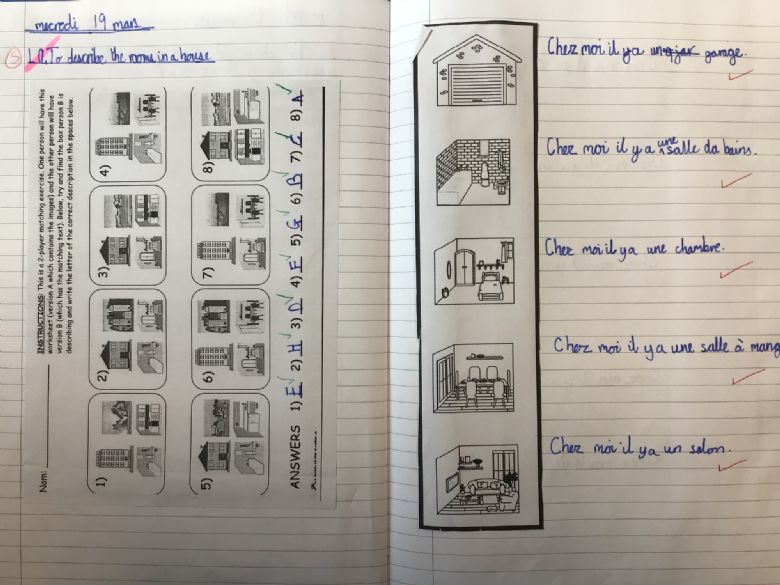 mecredi 19 mars
L.O. To describe the rooms in a house
Nom:
INSTRUCTIONS: This is a 2-player matching exercise. One person will have this
worksheet (version A which contains the images) and the other person will have
version B (which has the matching text). Below, try and find the box person B is
describing and write the letter of the correct description in the spaces below.
1) 2) 3) 4)
5) 6) 7) 8)
ANSWERS 1) 2) H 3) D 4) 5) G 6) B 7) C 8) A
Chez moi il y a un garage.
Chez moi il y a une salle da bains.
Chez moi il y a une chambre.
Chez moi il y a une salle à mang
Chez moi il y a un salon.